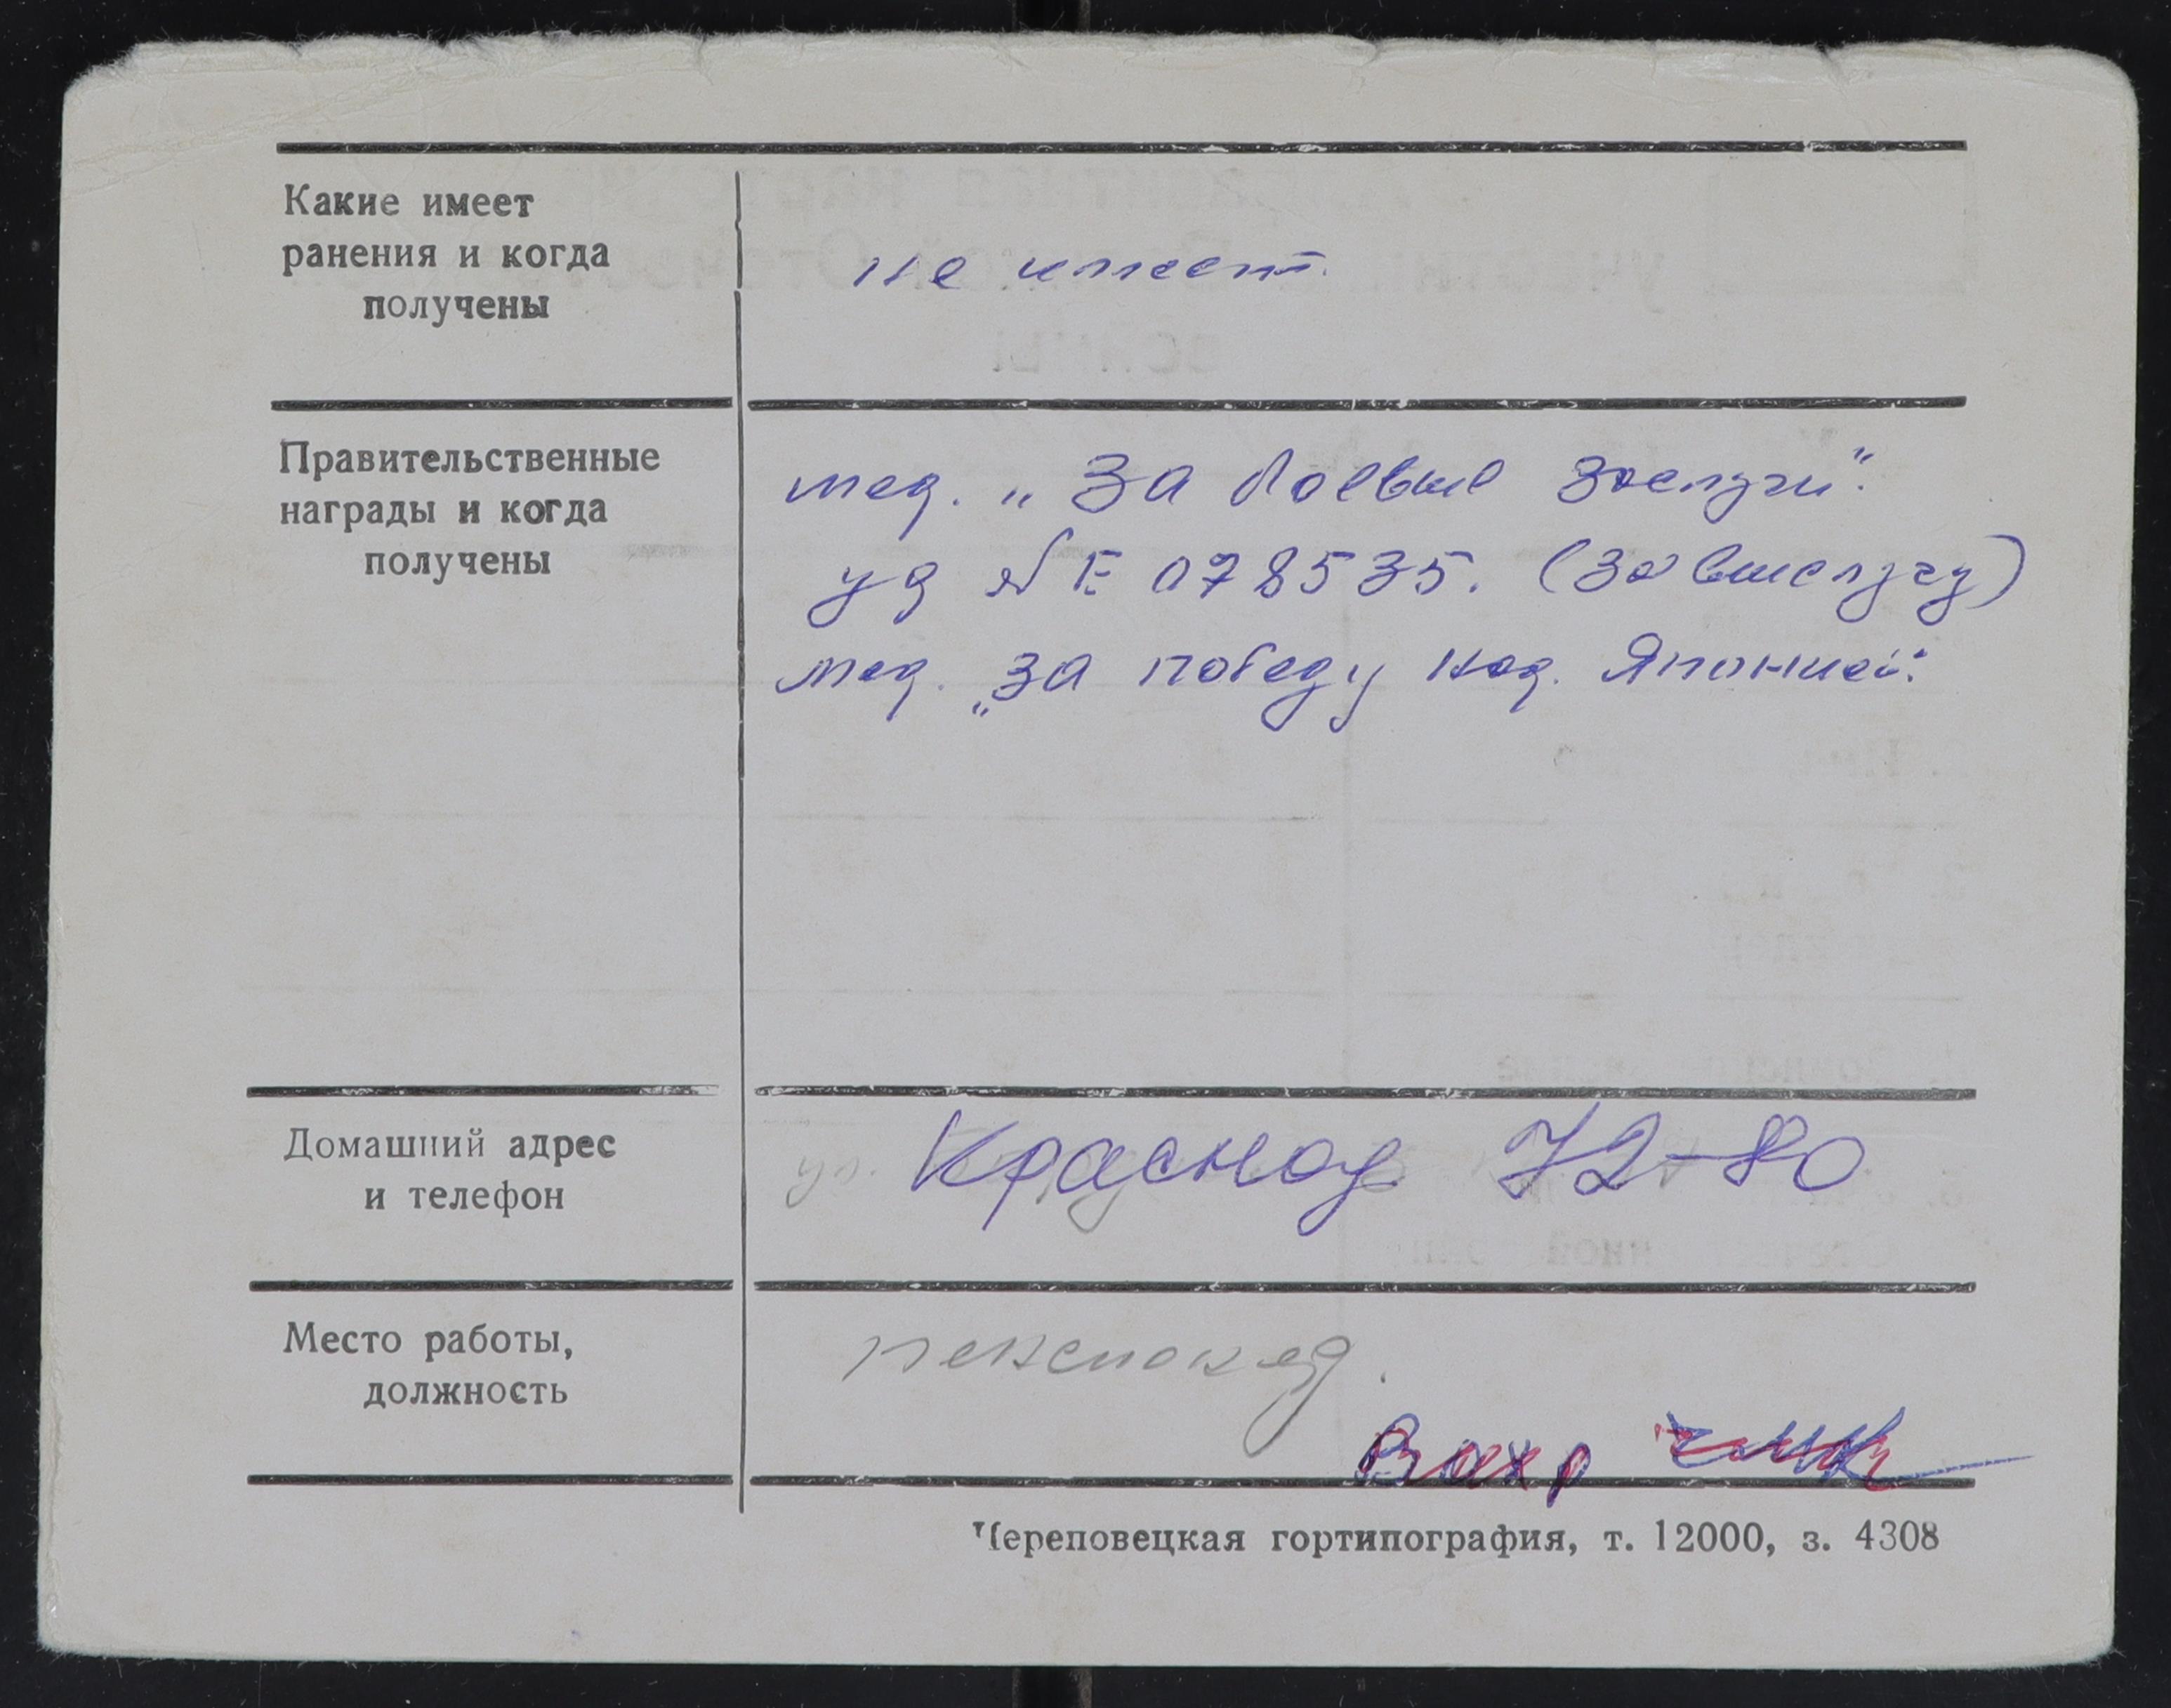 Какие имеет
ранения и когда
получены
не имеет.
Правительственные
награды и когда
получены
мед. „За боевые заслуги".
уд № Е 078535. (За выслугу)
мед. „За победу над. Японией".
Домашний адрес
и телефон
ул. Краснод 72-80
Место работы,
должность
Вахр
Череповецкая гортипография, т. 12000, з. 4308